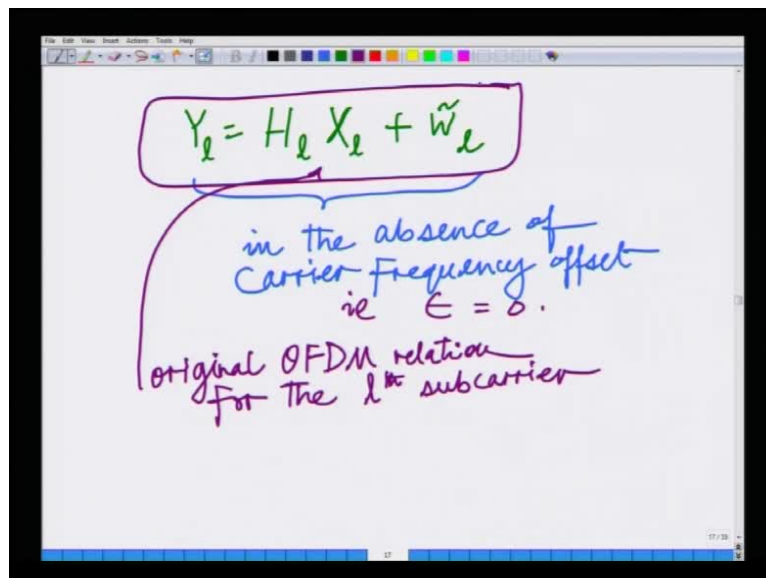 File Edit View Insert Actions Tools Help
Y_l = H_l X_l + W̃_l
in the absence of
Carrier Frequency offset
ie ϵ = 0.
original OFDM relation
For the lth subcarrier
17/39
17